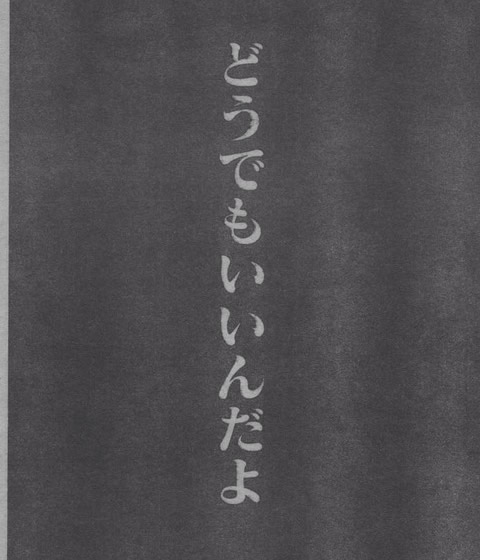 どうでもいいんだよ